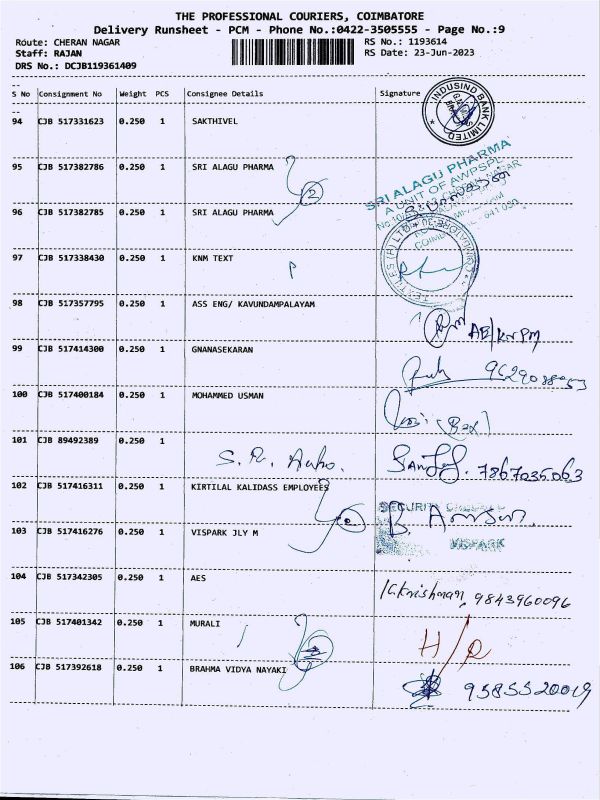 THE PROFESSIONAL COURIERS, COIMBATORE
Delivery Runsheet - PCM - Phone No.:0422-3505555 - Page No.:9
Route: CHERAN NAGAR
RS No.: 1193614
Staff: RAJAN
RS Date: 23-Jun-2023
DRS No.: DCJB119361409
S No Consignment No Weight PCS Consignee Details Signature
INDUSIND BANK LIMITED
94 CJB 517331623 0.250 1 SAKTHIVEL
95 CJB 517382786 0.250 1 SRI ALAGU PHARMA
2
SRI ALAGU PHARMA
A UNIT OF AWPSPL
96 CJB 517382785 0.250 1 SRI ALAGU PHARMA
97 CJB 517338430 0.250 1 KNM TEXT
P
98 CJB 517357795 0.250 1 ASS ENG/ KAVUNDAMPALAYAM
AE/KNPM
99 CJB 517414300 0.250 1 GNANASEKARAN
100 CJB 517400184 0.250 1 MOHAMMED USMAN
101 CJB 89492389 0.250 1
S.R. Auto. 7867035063
102 CJB 517416311 0.250 1 KIRTILAL KALIDASS EMPLOYEES
SECURITY
103 CJB 517416276 0.250 1 VISPARK JLY M
VISPARK
104 CJB 517342305 0.250 1 AES
K.Krishnan, 9843960096
105 CJB 517401342 0.250 1 MURALI
H/R
106 CJB 517392618 0.250 1 BRAHMA VIDYA NAYAKI